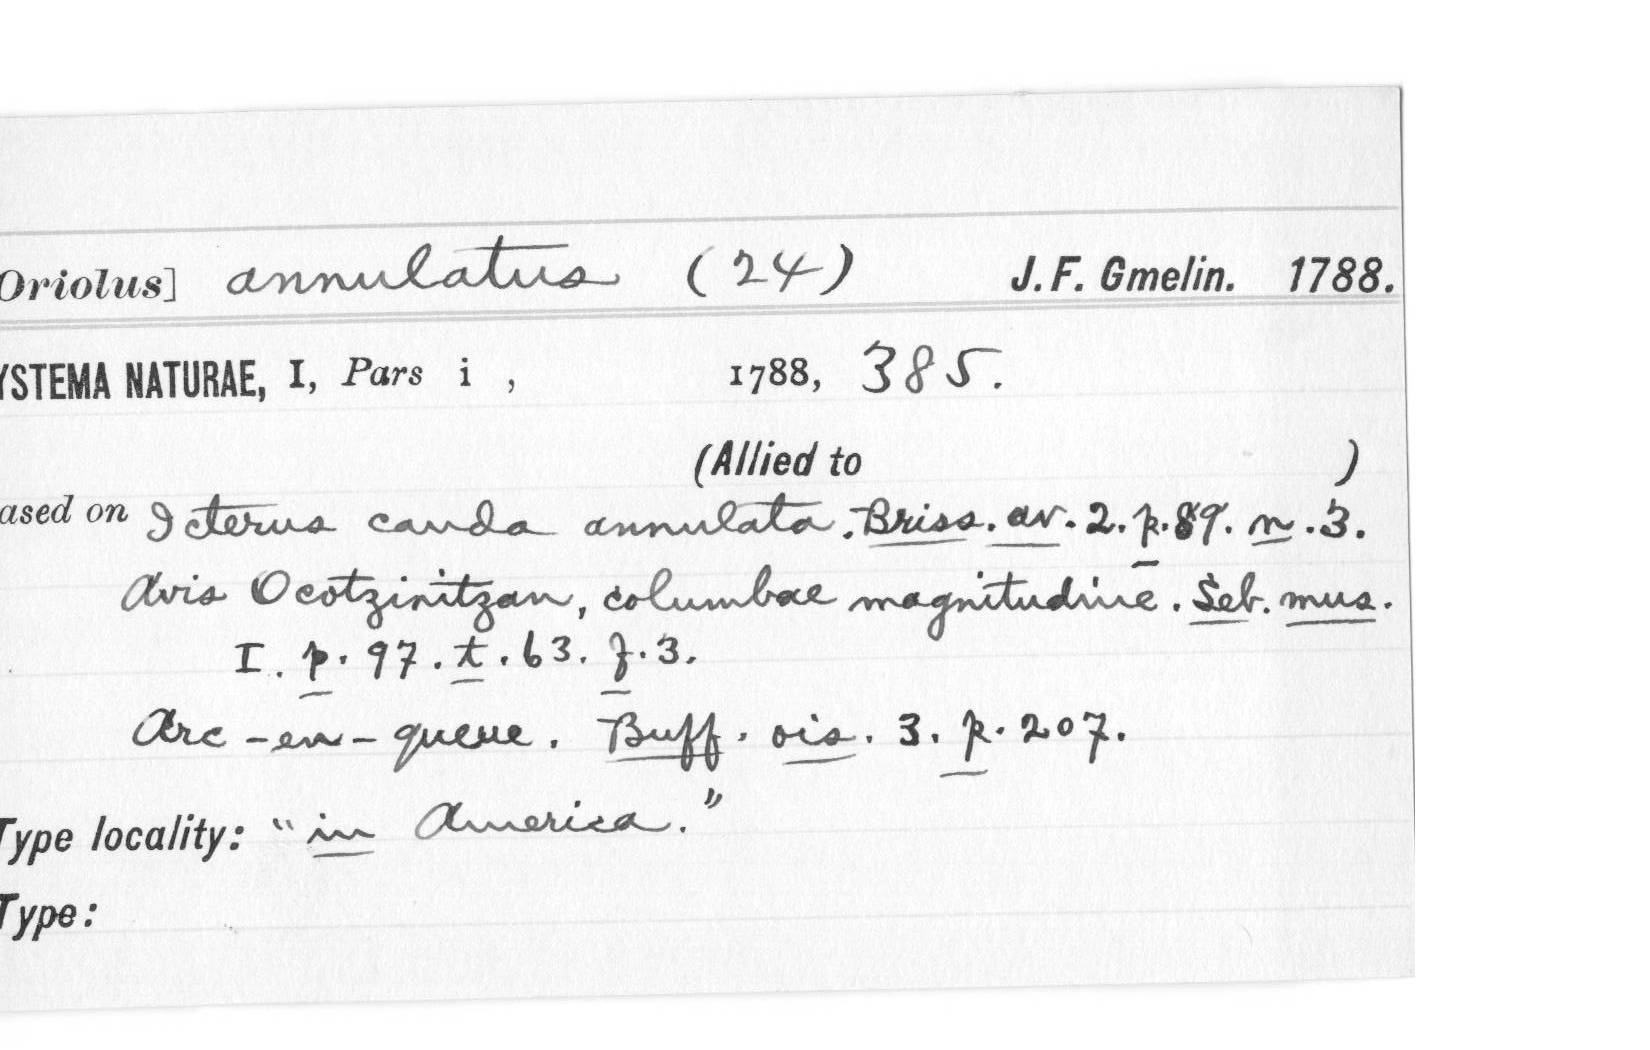 Oriolus] annulatus (24) J. F. Gmelin. 1788.
YSTEMA NATURAE, I, Pars i , 1788, 385.
(Allied to )
ased on Icterus cauda annulata. Briss. av. 2. p. 89. n. 3.
Avis Ocotzinitzan, columbae magnitudine. Seb. mus.
I. p. 97. t. 63. f. 3.
Arc-en-queue. Buff. ois. 3. p. 207.
Type locality: "in America."
Type: